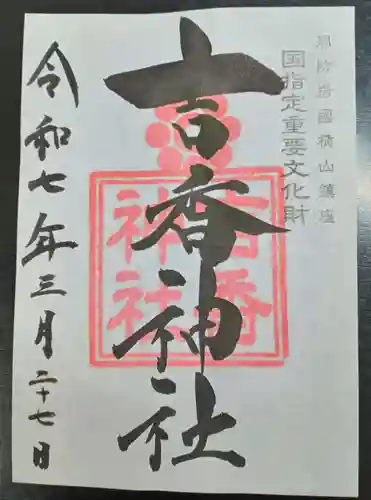 周防岩國横山鎮座
国指定重要文化財
吉香神社
吉香
神社
令和七年三月二十七日